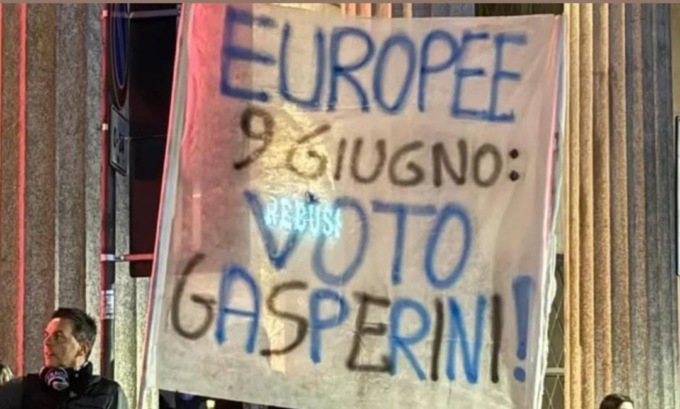 EUROPEE
9 GIUGNO:
VOTO
REBUS
GASPERINI!